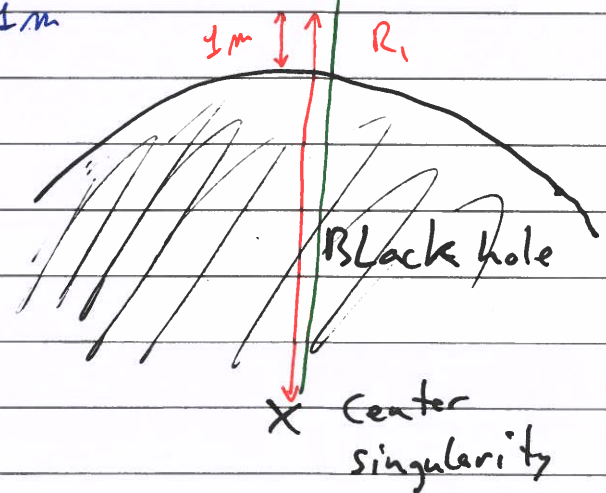 1m
1m R₁
Black hole
X Center
singularity